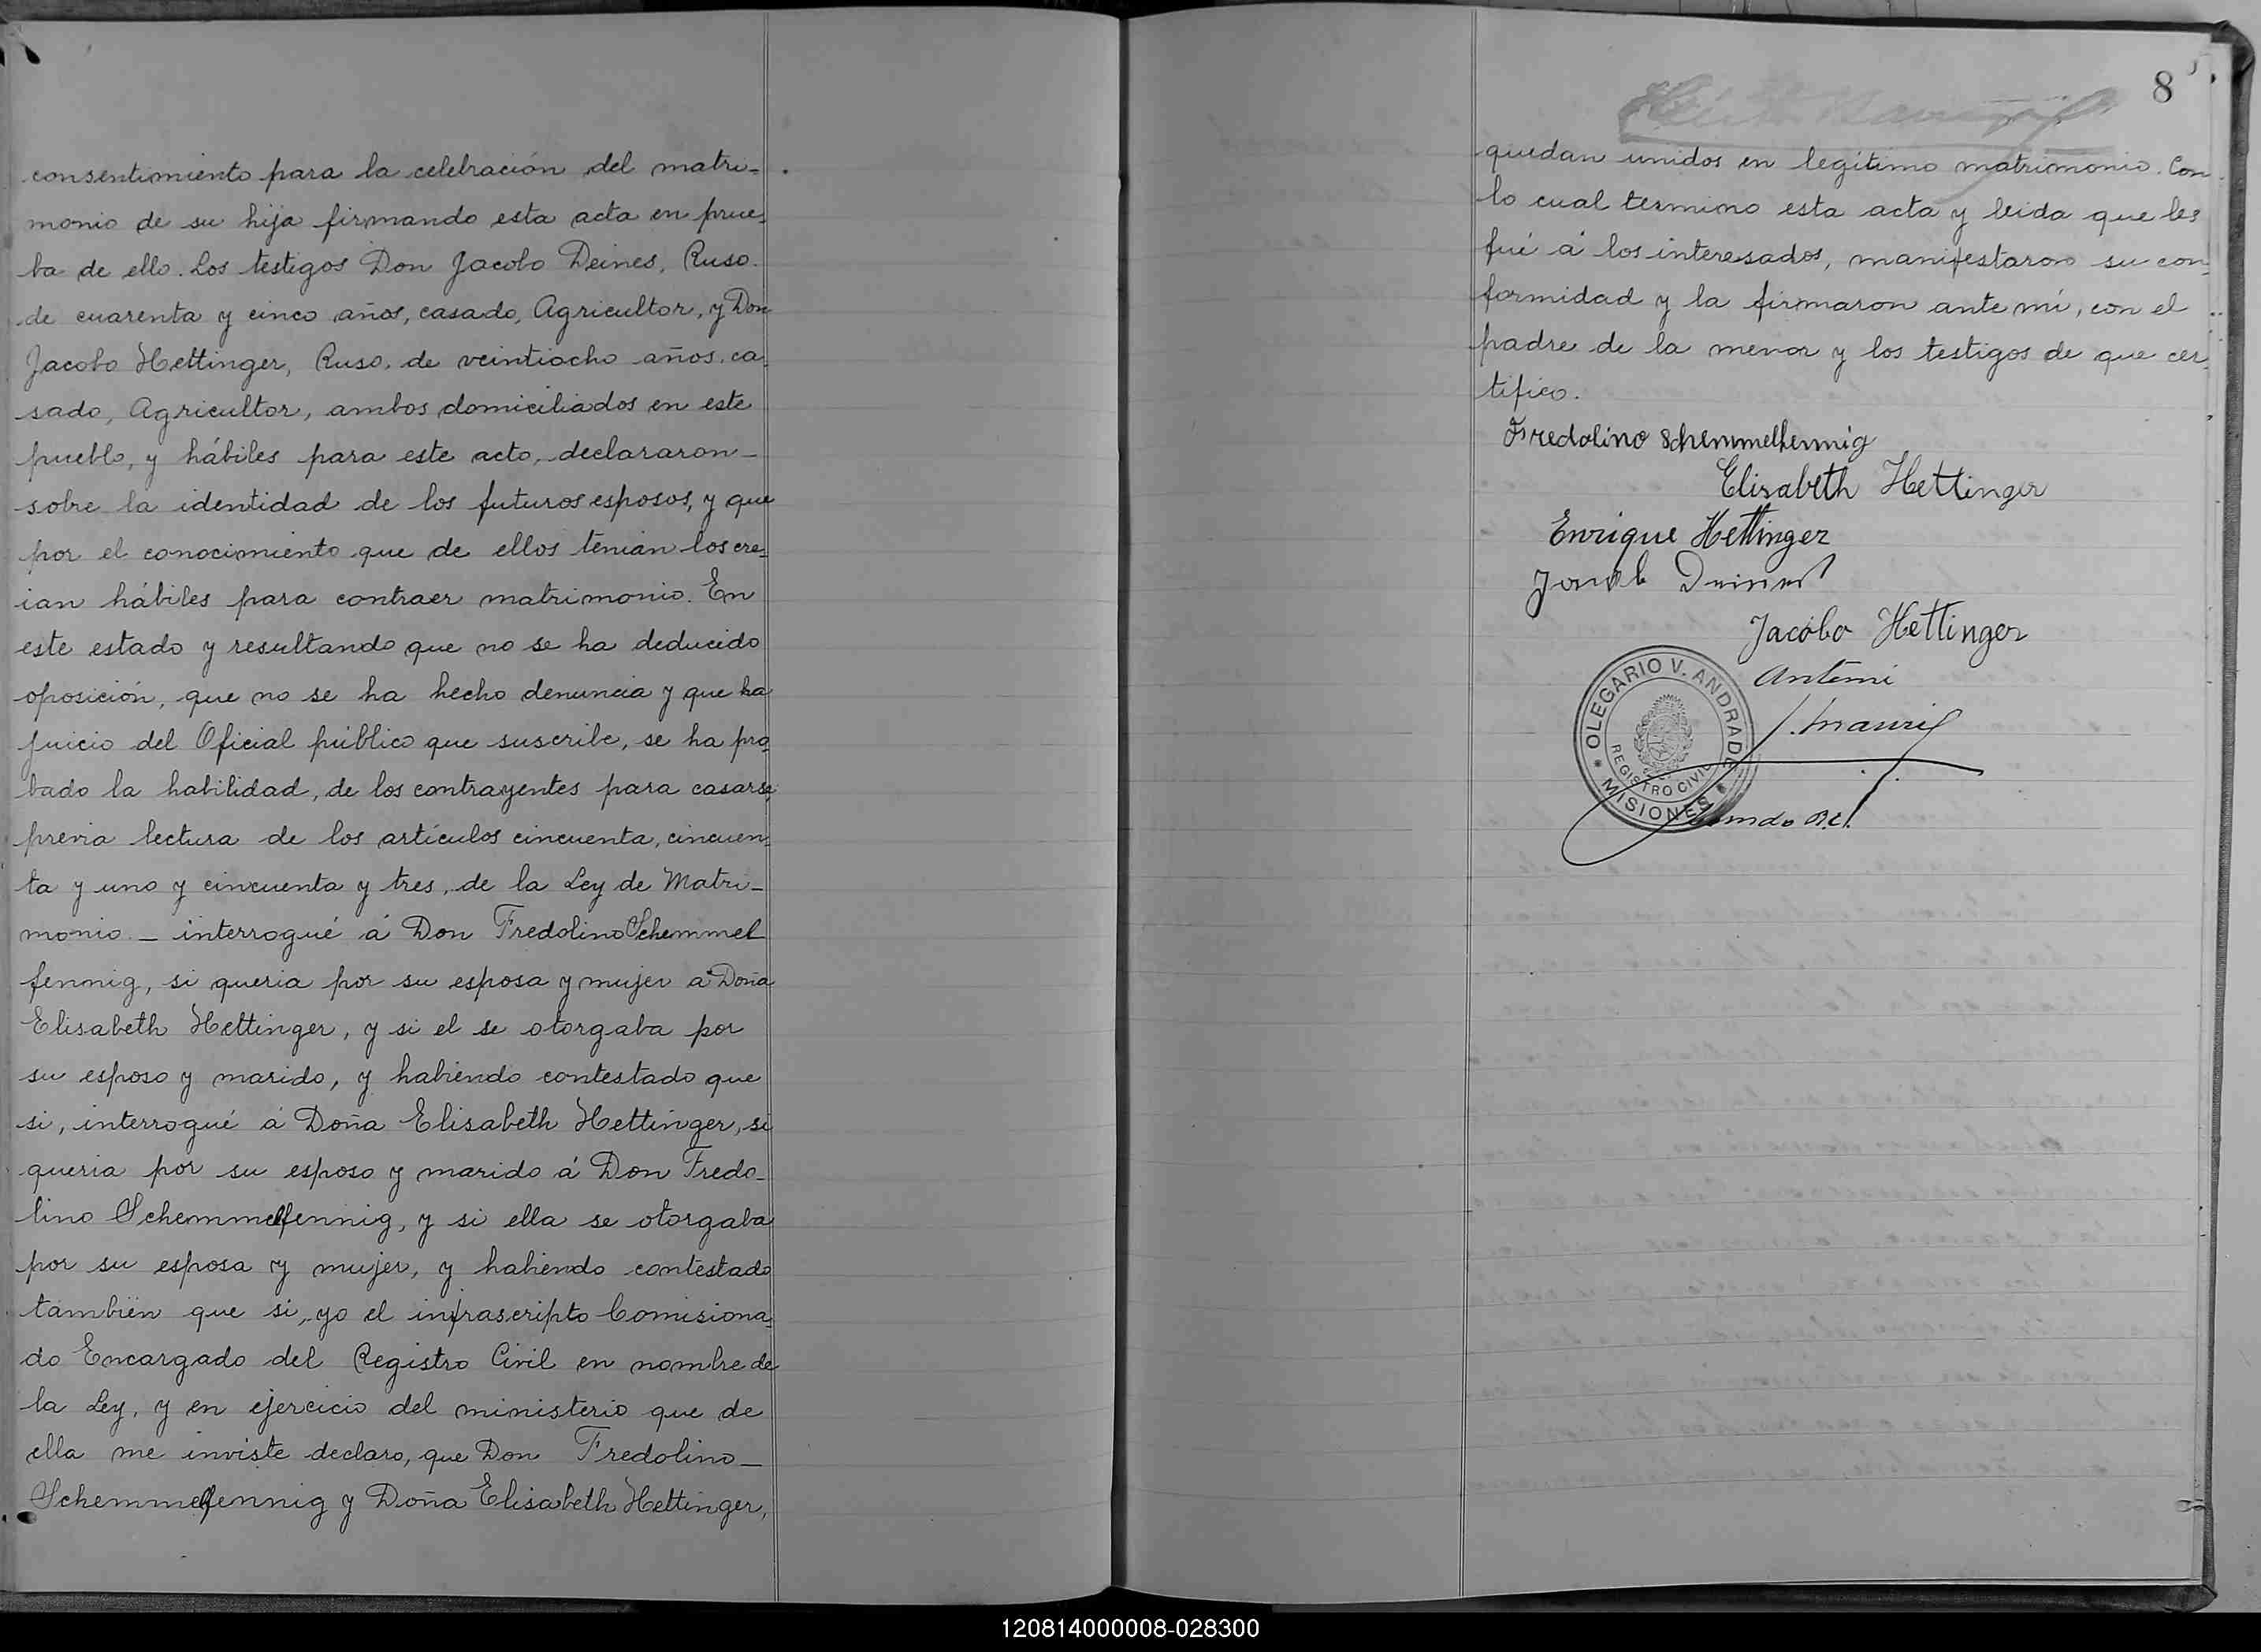 consentimiento para la celebración del matri-
monio de su hija firmando esta acta en prue-
ba de ello. Los testigos Don Jacobo Deines, Ruso.
de cuarenta y cinco años, casado, Agricultor, y Don
Jacobo Hettinger, Ruso, de veintiocho años, ca-
sado, Agricultor, ambos domiciliados en este
pueblo, y hábiles para este acto, declararon-
sobre la identidad de los futuros esposos, y que
por el conocimiento que de ellos tenian los cre-
ian hábiles para contraer matrimonio. En
este estado y resultando que no se ha deducido
oposición, que no se ha hecho denuncia y que ha
juicio del Oficial público que suscribe, se ha pro-
bado la habilidad, de los contrayentes para casarse,
previa lectura de los artículos cincuenta, cincuen-
ta y uno y cincuenta y tres, de la Ley de Matri-
monio - interrogué á Don Fredolino Schemmel
fennig, si queria por su esposa y mujer a Doña
Elisabeth Hettinger, y si el se otorgaba por
su esposo y marido, y habiendo contestado que
si, interrogué á Doña Elisabeth Hettinger, si
queria por su esposo y marido á Don Fredo-
lino Schemmelfennig, y si ella se otorgaba
por su esposa y mujer, y habiendo contestado
tambien que si, yo el infrascripto Comisiona-
do Encargado del Registro Civil en nombre de
la Ley, y en ejercicio del ministerio que de
ella me inviste declaro, que Don Fredolino-
Schemmelfennig y Doña Elisabeth Hettinger,
8
quedan unidos en legítimo matrimonio. Con
lo cual termino esta acta y leida que les
fué á los interesados, manifestaron su con-
formidad y la firmaron ante mí, con el
padre de la menor y los testigos de que cer-
tifico.
Fredolino Schemmelfennig
Elisabeth Hettinger
Enrique Hettinger
Jacob Deines
Jacobo Hettinger
Antemi
OLEGARIO V. ANDRADE
REGISTRO CIVIL
MISIONES
120814000008-028300